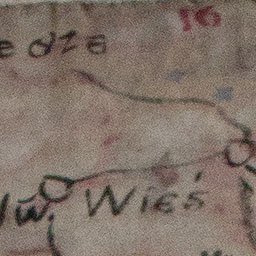 16
edze
Nw. Wieś